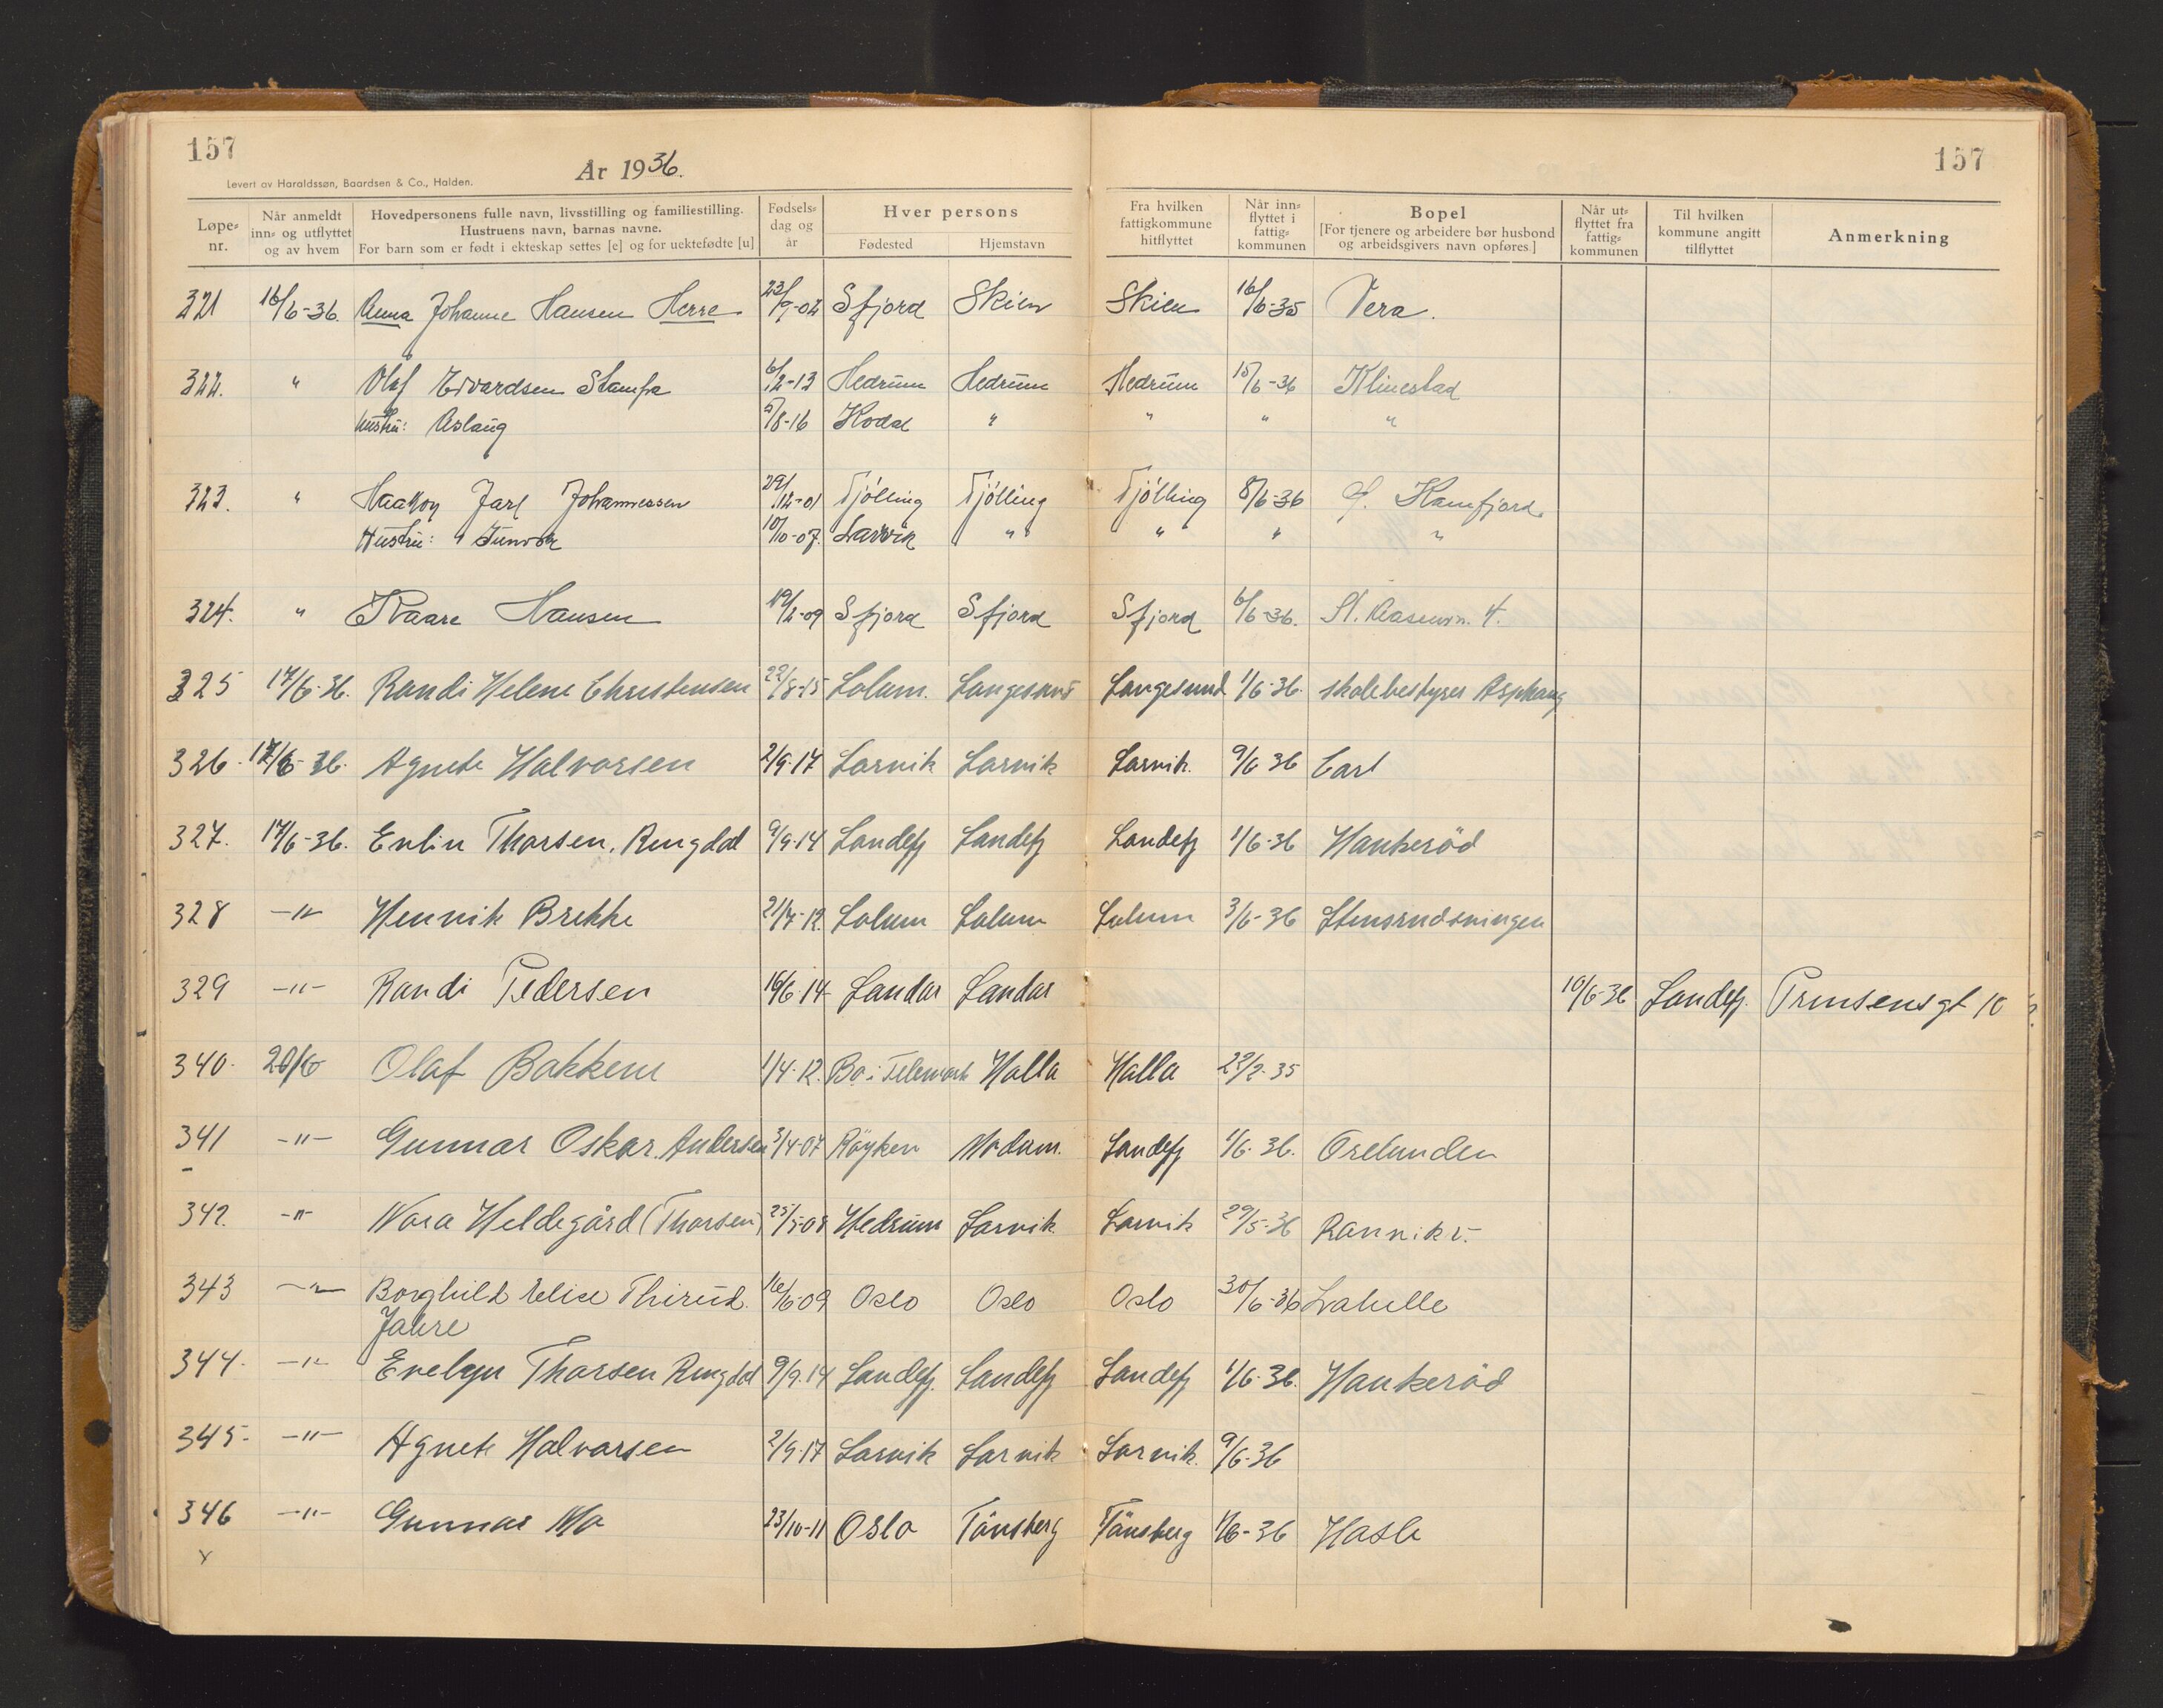 157
157
År 1936.
Levert av Haraldssøn, Baardsen & Co., Halden.
Løpe-nr. Når anmeldt inn- og utflyttet og av hvem Hovedpersonens fulle navn, livsstilling og familiestilling. Hustruens navn, barnas navne. For barn som er født i ekteskap settes [e] og for uektefødte [u] Fødsels-dag og år Hver persons Fødested Hjemstavn Fra hvilken fattigkommune hitflyttet Når inn-flyttet i fattig-kommunen Bopel [For tjenere og arbeidere bør husbond og arbeidsgivers navn opføres.] Når ut-flyttet fra fattig-kommunen Til hvilken kommune angitt tilflyttet Anmerkning
321 16/6-36. Anna Johanne Hansen Herre 23/9-02 Sfjord Skien Skien 16/6-35 Vera.
322. " Olaf Edvardsen Stampa 6/12-13 Hedrum Hedrum Hedrum 15/6-36 Klinestad
Hustru: Aslaug 5/8-16 Kodal " " " "
323. " Haakon Jarl Johannessen 29/12-01 Tjölling Tjölling Tjölling 8/6-36 Kamfjord.
Hustru: Gunvor 10/10-07. Larvik " " " "
324. " Kaare Hansen 19/2-09 Sfjord Sfjord Sfjord 6/6-36. St. Aasenvn. 4.
325 17/6-36. Randi Helene Christensen 22/8-15 Solum. Langesund Langesund 1/6-36. skolebestyrer Asphaug
326. 17/6-36. Agnete Halvorsen 2/9-17 Larvik Larvik Larvik. 9/6 36 Carl
327. 17/6-36. Evlin Thorsen, Ringdal 9/9-14 Sandefj Sandefj Sandefj 1/6-36 Haukerød
328 -"- Henrik Brekke 21/7-12. Solum Solum Solum 3/6-36 Stensrudsvingen
329 -"- Randi Pedersen 16/6-14 Sandar Sandar 10/6-36 Sandefj. Prinsensgt 10
340. 20/6 Olaf Bakken 1/4-12. Bø i Telemark Holla Holla 22/2-35
341 -"- Gunnar Oskar Andersen 3/4-07 Røyken Modum. Sandefj 1/6-36. Orelunden
342. -"- Nora Heldegård (Thorsen) 25/5-08 Hedrum Larvik. Larvik 29/5-36 Ranvik v.
343 -"- Borghild Elise Thirud. 16/6-09 Oslo Oslo Oslo 30/6-36 Lahelle
Jahre
344. -"- Evelyn Thorsen Ringdal 9/9-14 Sandefj. Sandefj Sandefj 1/6-36. Haukerød
345. -"- Agnete Halvorsen 2/9-17 Larvik Larvik Larvik. 9/6-36
346 -"- Gunnar Mo 23/10-11 Oslo Tønsberg Tønsberg 1/6-36 Hasle
x